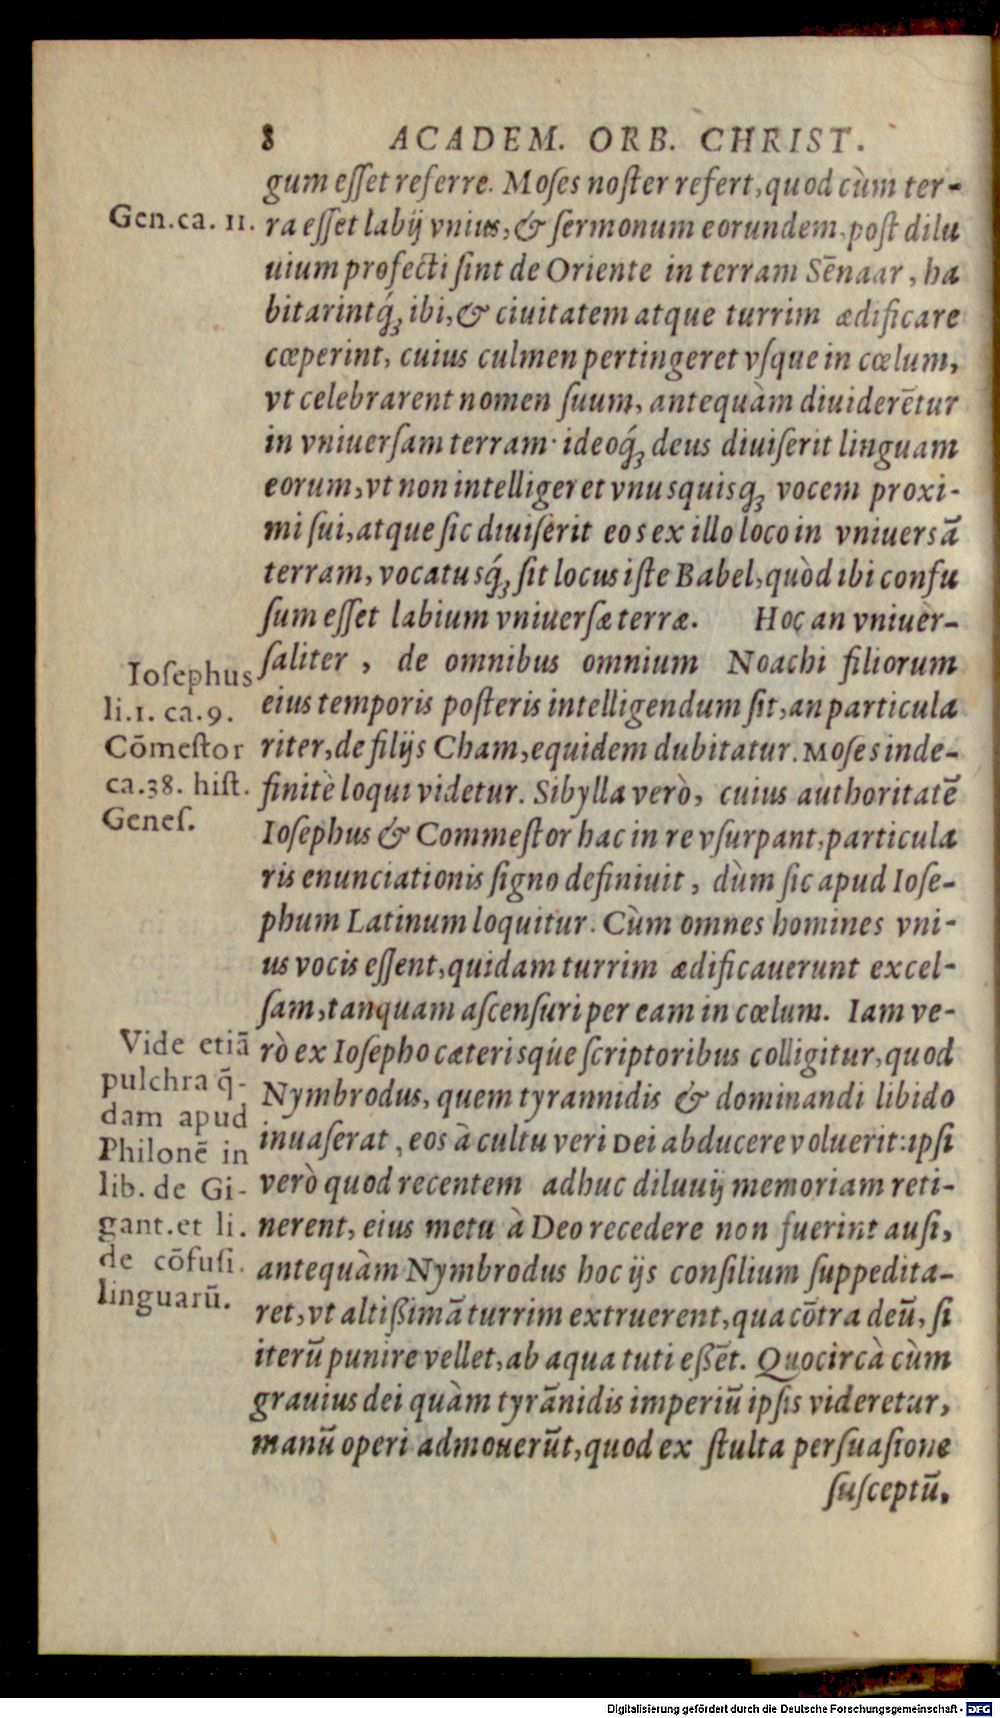 8 ACADEM. ORB. CHRIST.
gum eſſet referre. Moſes noſter refert, quod cùm ter-
Gen.ca. 11.
ra eſſet labij vnius, & ſermonum eorundem, poſt dilu
uium profecti ſint de Oriente in terram Sēnaar, ha
bitarintq́ꝫ ibi, & ciuitatem atque turrim ædificare
cœperint, cuius culmen pertingeret vſque in cœlum,
vt celebrarent nomen ſuum, antequàm diuiderētur
in vniuerſam terram· ideoq́ꝫ deus diuiſerit linguam
eorum, vt non intelligeret vnuſquisqꝫ vocem proxi-
mi ſui, atque ſic diuiſerit eos ex illo loco in vniuersā
terram, vocatusq́ꝫ ſit locus iſte Babel, quòd ibi confu
ſum eſſet labium vniuerſæ terræ. Hoc an vniuer-
ſaliter, de omnibus omnium Noachi filiorum
eius temporis poſteris intelligendum ſit, an particula
riter, de filijs Cham, equidem dubitatur. Moſes inde-
finitè loqui videtur. Sibylla verò, cuius authoritatē
Ioſephus & Commeſtor hac in re vſurpant, particula
ris enunciationis ſigno definiuit, dùm ſic apud Ioſe-
phum Latinum loquitur. Cùm omnes homines vni-
us vocis eſſent, quidam turrim ædificauerunt excel-
ſam, tanquam aſcenſuri per eam in cœlum. Iam ve-
rò ex Ioſepho cæterisque ſcriptoribus colligitur, quod
Nymbrodus, quem tyrannidis & dominandi libido
inuaſerat, eos à cultu veri Dei abducere voluerit: ipſi
verò quod recentem adhuc diluuij memoriam reti-
nerent, eius metu à Deo recedere non fuerint auſi,
antequàm Nymbrodus hoc ijs conſilium ſuppedita-
ret, vt altißimā turrim extruerent, qua cōtra deū, ſi
iterū punire vellet, ab aqua tuti eßēt. Quocircà cùm
grauius dei quàm tyrānidis imperiū ipſis videretur,
manū operi admouerūt, quod ex ſtulta perſuaſione
ſuſceptū,
Ioſephus
li.1. ca.9.
Cōmeſtor
ca.38. hiſt.
Geneſ.
Vide etiā
pulchra q̄-
dam apud
Philonē in
lib. de Gi-
gant. et li.
de cōfuſi.
linguarū.
Digitalisierung gefördert durch die Deutsche Forschungsgemeinschaft - DFG